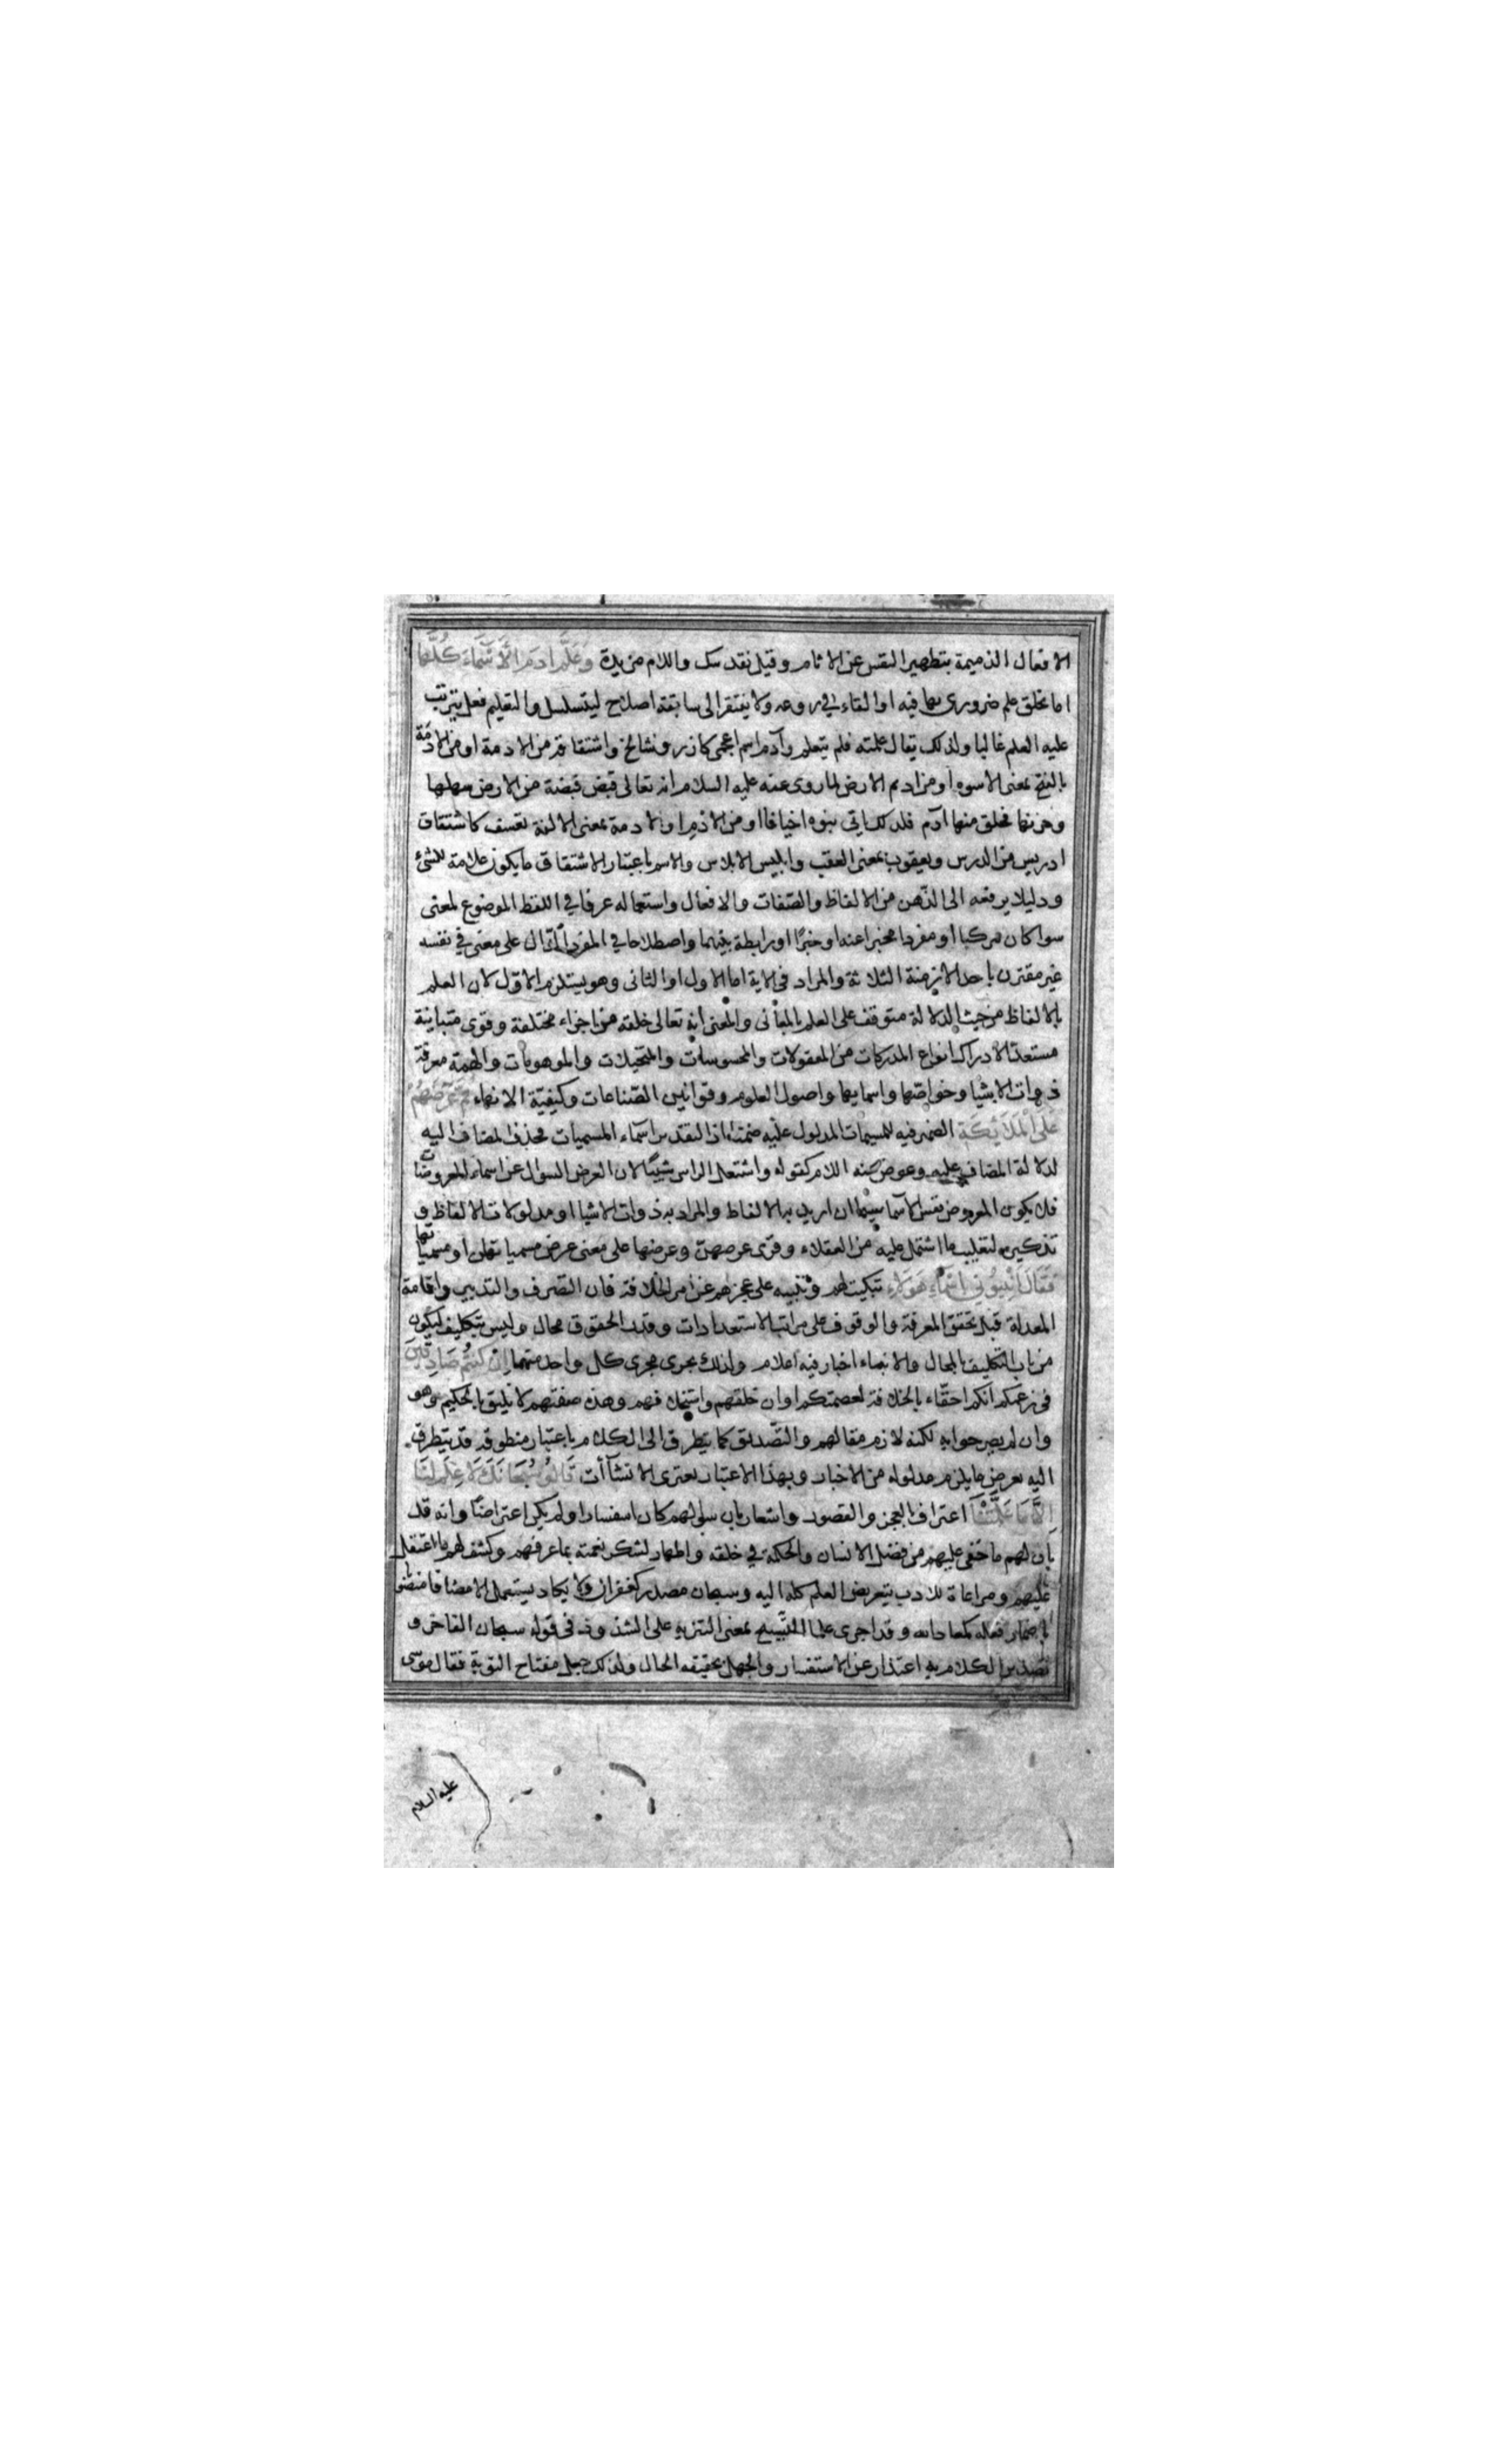 الافعال الذميمة بتطهير النفس عن الاثام وقيل نقدسك واللام مزيدة وَعَلَّمَ ادَمَ الْاَسْمَاءَ كُلَّهَا
اما بخلق علم ضروري بها فيه او القاء في روعه ولا يفتقر الى سابقة اصلاح ليتسلسل والتعليم فعل يترتب
عليه العلم غالبا ولذلك يقال علمته فلم يتعلم وآدم اسم اعجمي كازر وشالخ واشتقاقه من الادمة او من الادَمَة
بالفتح بمعنى الاسوه او من اديم الارض لما روى عنه عليه السلام انه تعالى قبض قبضة من الارض سهلها
وحزنها فخلق منها آدم فلذلك ياتي بنوه اخيافا او من الاُدْم او الادمة بمعنى الالفة تعسف كاشتقاق
ادريس من الدرس ويعقوب بمعنى العقب وابليس الابلاس والاسم باعتبار الاشتقاق ما يكون علامة للشئ
ودليلا يرفعه الى الذّهن من الالفاظ والصّفات والافعال واستعماله عرفا في اللفظ الموضوع لمعنى
سوا كان مركبا او مفردا مخبرا عنه او خبرًا او رابطة بينهما واصطلاحا في المفرد الدّال على معنى في نفسه
غير مقترن باحد الازمنة الثلاثة والمراد في الاية اما الاول او الثانى وهو يستلزم الاوّل لان العلم
بالالفاظ من حيث الدلالة متوقف على العلم بالمعانى والمعنى انه تعالى خلقه من اجزاء مختلفة وقوى متباينة
مستعدّا لادراك انواع المدركات من المعقولات والمحسوسات والمتخيلات والموهومات والهمة معرفة
ذوات الاشيا وخواصّها واسمايها واصول العلوم وقوانين الصّناعات وكيفيّة الانهاء ثُمَّ عَرَضَهُمْ
عَلَى الْمَلَائِكَةِ الضمير فيه للمسميات المدلول عليه ضمنا اذ التقدير اسماء المسميات فحذف المضاف اليه
لدلالة المضاف عليه وعوض عنه اللام كقوله واشتعل الراس شيبًا لان العرض السوال عن اسماء المعروضات
فلا يكون المعروض نفس الاسما سيما ان اريد به الالفاظ والمراد به ذوات الاشيا او مدلولات الالفاظ و
تذكيره لتغليب ما اشتمل عليه من العقلاء وقرى عرضهنّ وعرضها على معنى عرض مسمياتهن او مسمياتها
فَقَالَ اَنْبِئُونِي بِاَسْمَاءِ هَؤُلَاءِ تبكيت لهم وتنبيه على عجزهم عن امر الخلافة فان التصرف والتدبير واقامة
المعدلة قبل تحقق المعرفة والوقوف على مراتب الاستعدادات وقدر الحقوق محال وليس بتكليف ليكون
من باب التكليف بالمحال والانباء اخبار فيه اعلام ولذلك يجرى مجرى كل واحد منهما اِنْ كُنْتُمْ صَادِقِينَ
فى زعمكم انكم احقّاء بالخلافة لعصمتكم او ان خلقهم واستخلافهم وهذه صفتهم لا يليق بالحكيم وهو
وان لم يصرحوا به لكنه لازم مقالهم والتّصديق كما يتطرق الى الكلام باعتبار منطوقه قد يتطرق
اليه بعرض ما يلزم مدلوله من الاخبار وبهذا الاعتبار يعترى الانشآأت قَالُوا سُبْحَانَكَ لَا عِلْمَ لَنَا
اِلَّا مَا عَلَّمْتَنَا اعتراف بالعجز والقصور واشعار بان سوالهم كان استفسارا ولم يكن اعتراضًا وانه قد
بان لهم ما خفى عليهم من فضل الانسان والحكمة في خلقه واظهار لشكر نعمته بما عرفهم وكشف لهم ما اعتقل
عليهم ومراعاة للادب بتعريض العلم كله اليه وسبحان مصدر كغفران ولا يكاد يستعمل الا مضافا منصوبا
باضمار فعله كمعاذ الله وقد اجرى علما للتسبيح بمعنى التنزيه على الشذوذ فى قوله سبحان الفاخر و
تصدير الكلام به اعتذار عن الاستفسار والجهل بحقيقه الحال ولذلك جعل مفتاح التوبة فقال موسى
عليه السلام